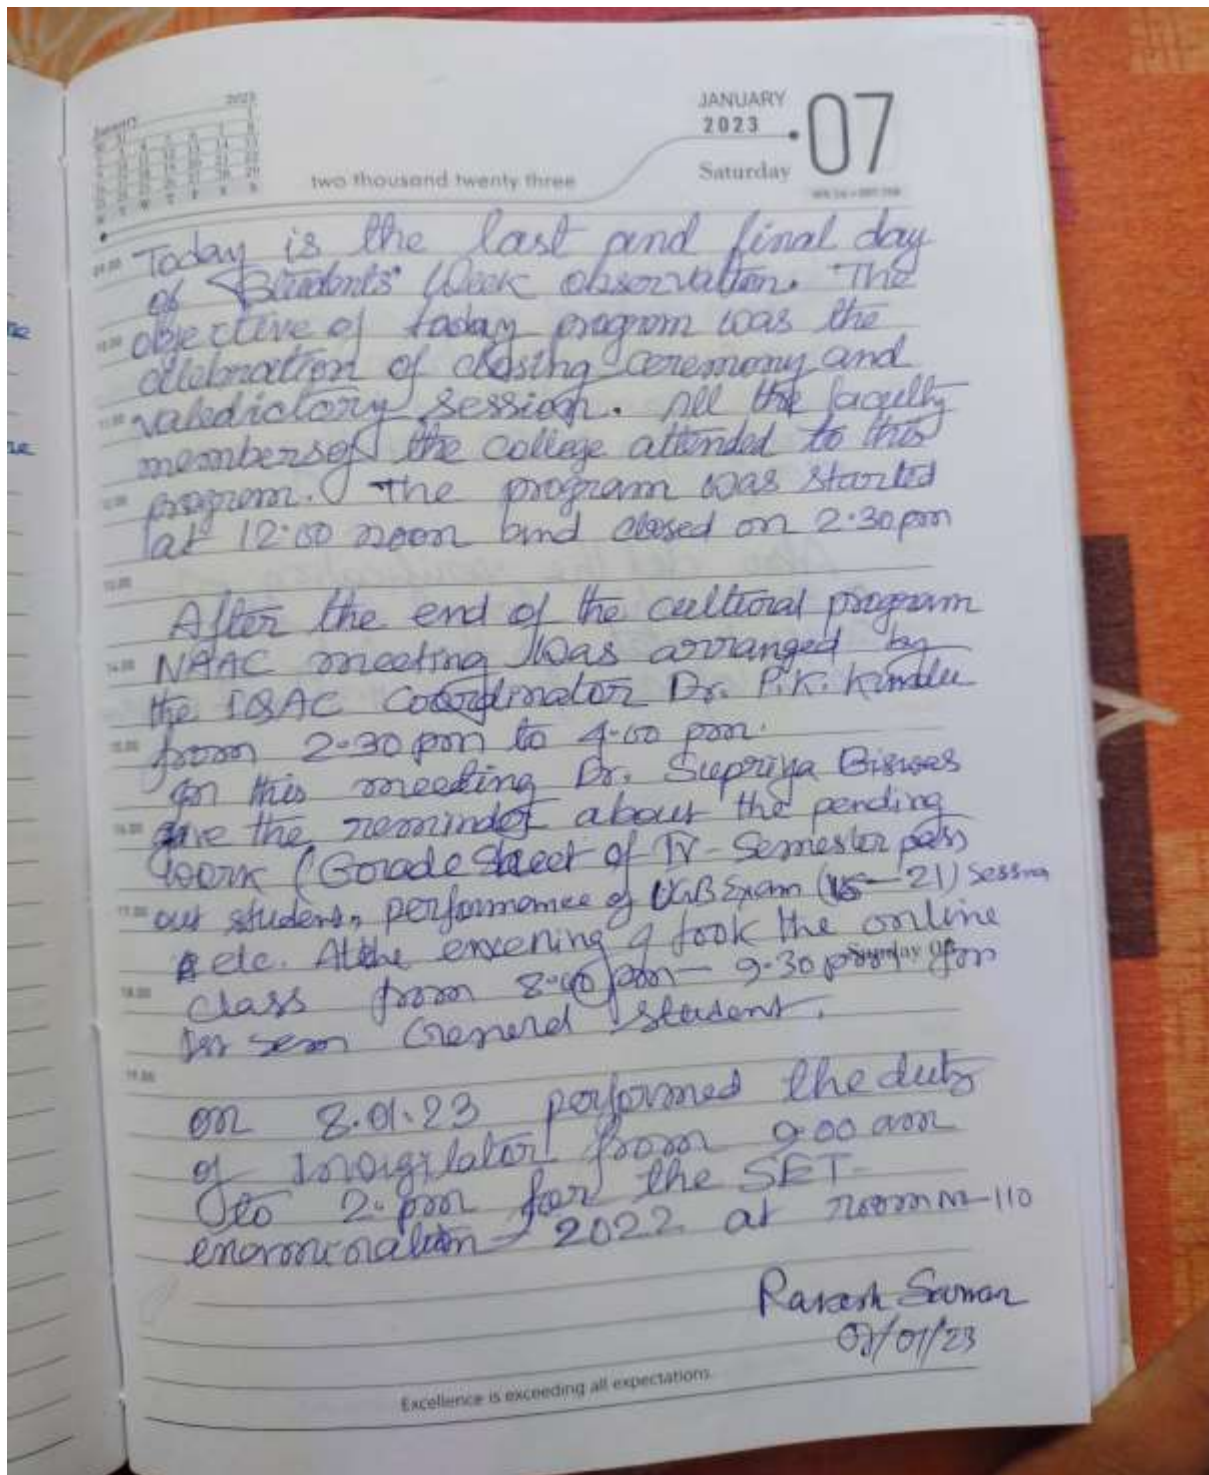 2023
January
JANUARY
2023
07
Saturday
two thousand twenty three
Today is the last and final day
of Students' Week observation. The
objective of today program was the
celebration of closing ceremony and
valedictory session. All the faculty
members of the college attended to this
program. The program was started
at 12:00 noon and closed on 2.30 pm
After the end of the cultural program
NAAC meeting was arranged by
the IQAC Coordinator Dr. P.K. Kundu
from 2-30 pm to 4-00 pm.
In this meeting Dr. Supriya Biswas
give the reminder about the pending
work (Grade Sheet of IV-Semester pass
out students, performance of Exam (15-21) Session
etc. At the evening I took the online
class from 8.40 pm - 9.30 pm for
Ist sem General Student.
on 8.01.23 performed the duty
of Invigilator from 9.00 am
to 2. pm for the SET-
examination - 2022 at room no-110
/01/23
Excellence is exceeding all expectations.